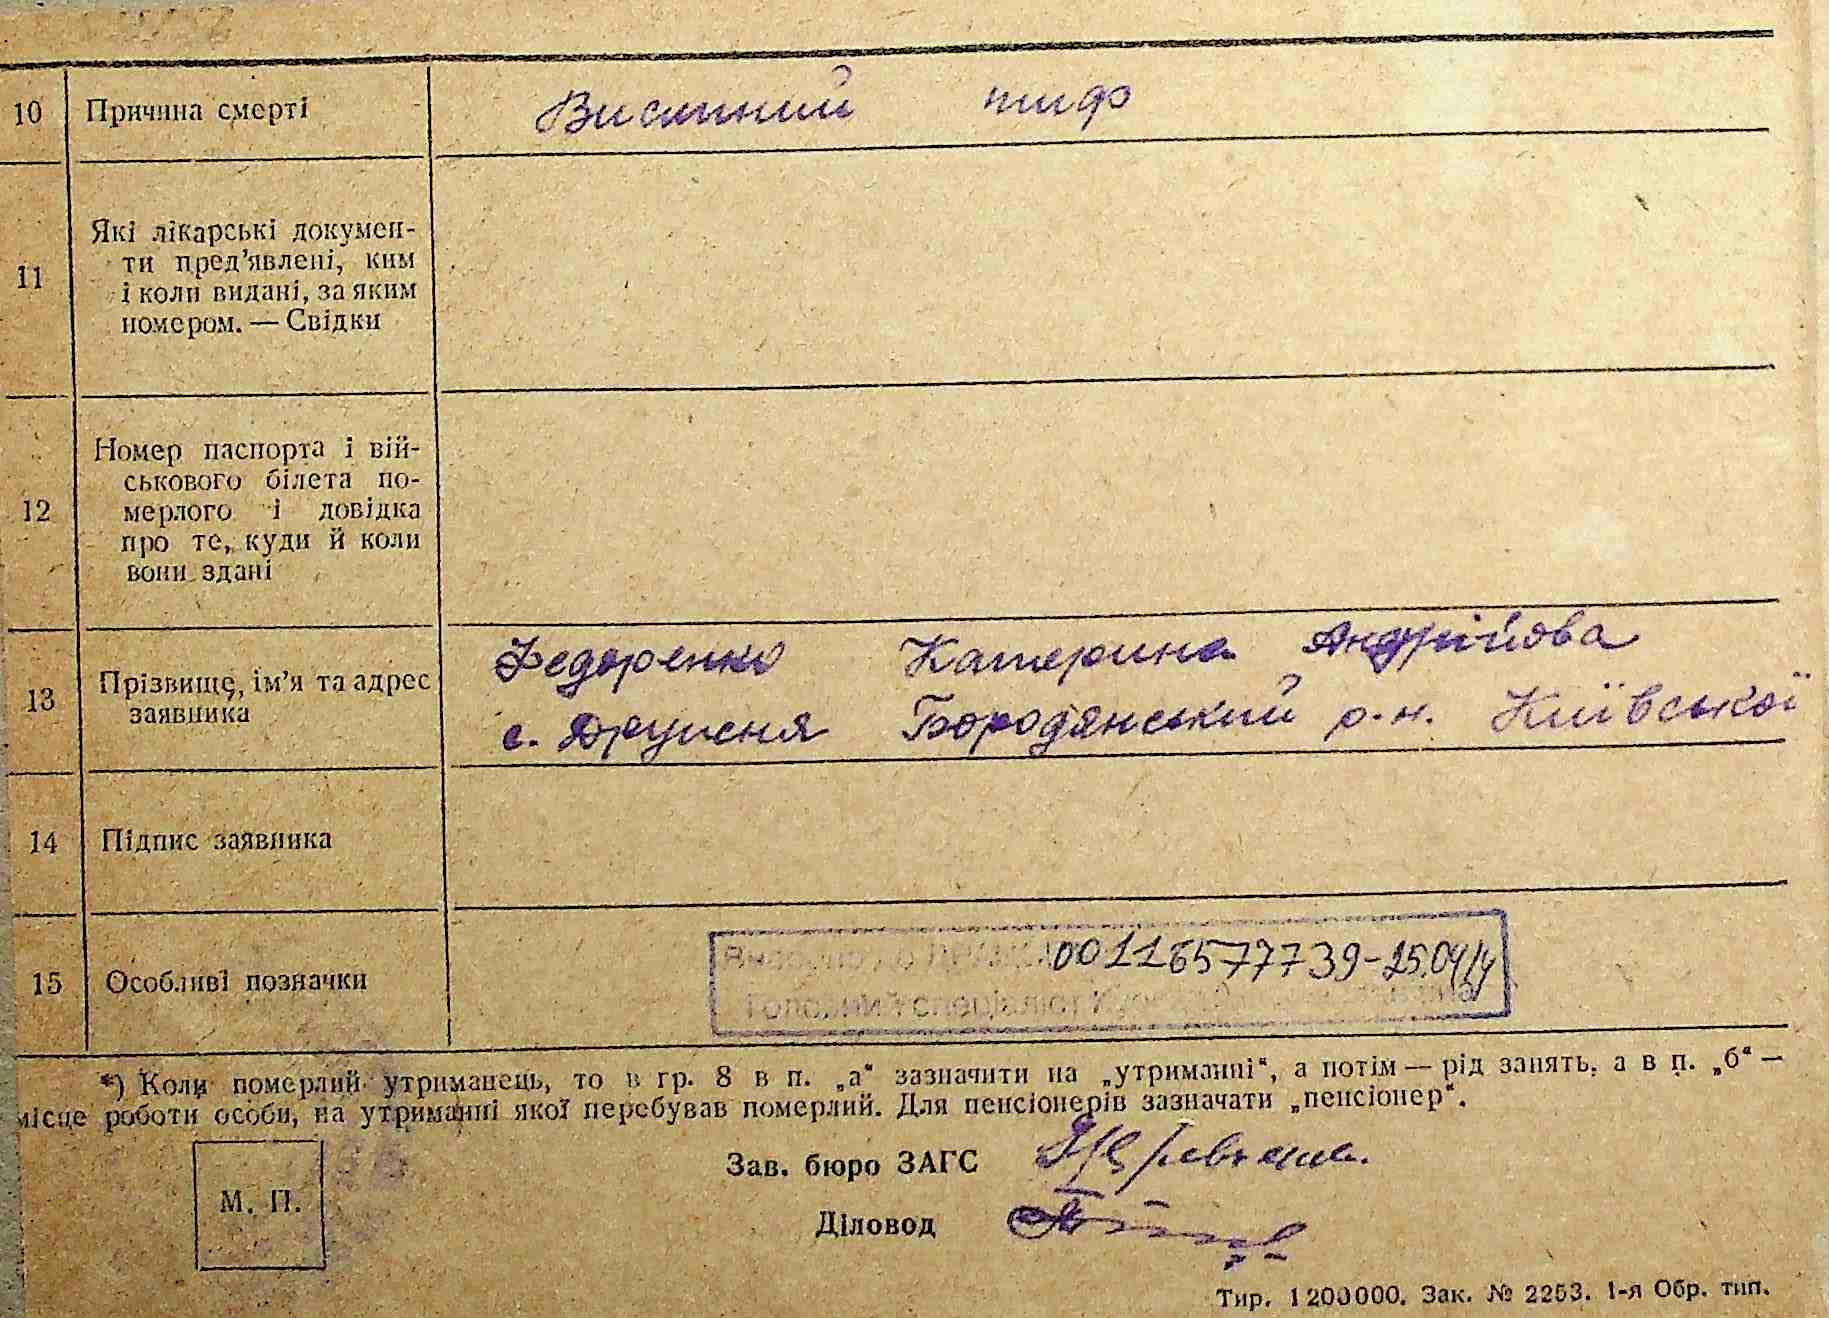 10 Причина смерті Висипний тиф
11 Які лікарські докумен-
ти пред’явлені, ким
і коли видані, за яким
номером. — Свідки
12 Номер паспорта і вій-
ськового білета по-
мерлого і довідка
про те, куди й коли
вони здані
13 Прізвище, ім’я та адрес
заявника
Федоренко Катерина Андрійовa
с. Дружня Бородянський р.н. Київської
14 Підпис заявника
15 Особливі позначки
00116577739-25.04/14
Головний спеціаліст
*) Коли померлий утриманець, то в гр. 8 в п. „а“ зазначити на „утриманні“, а потім — рід занять, а в п. „б“ —
місце роботи особи, на утриманні якої перебував померлий. Для пенсіонерів зазначати „пенсіонер“.
М. П.
Зав. бюро ЗАГС
Діловод
Тир. 1200000. Зак. № 2253. 1-я Обр. тип.